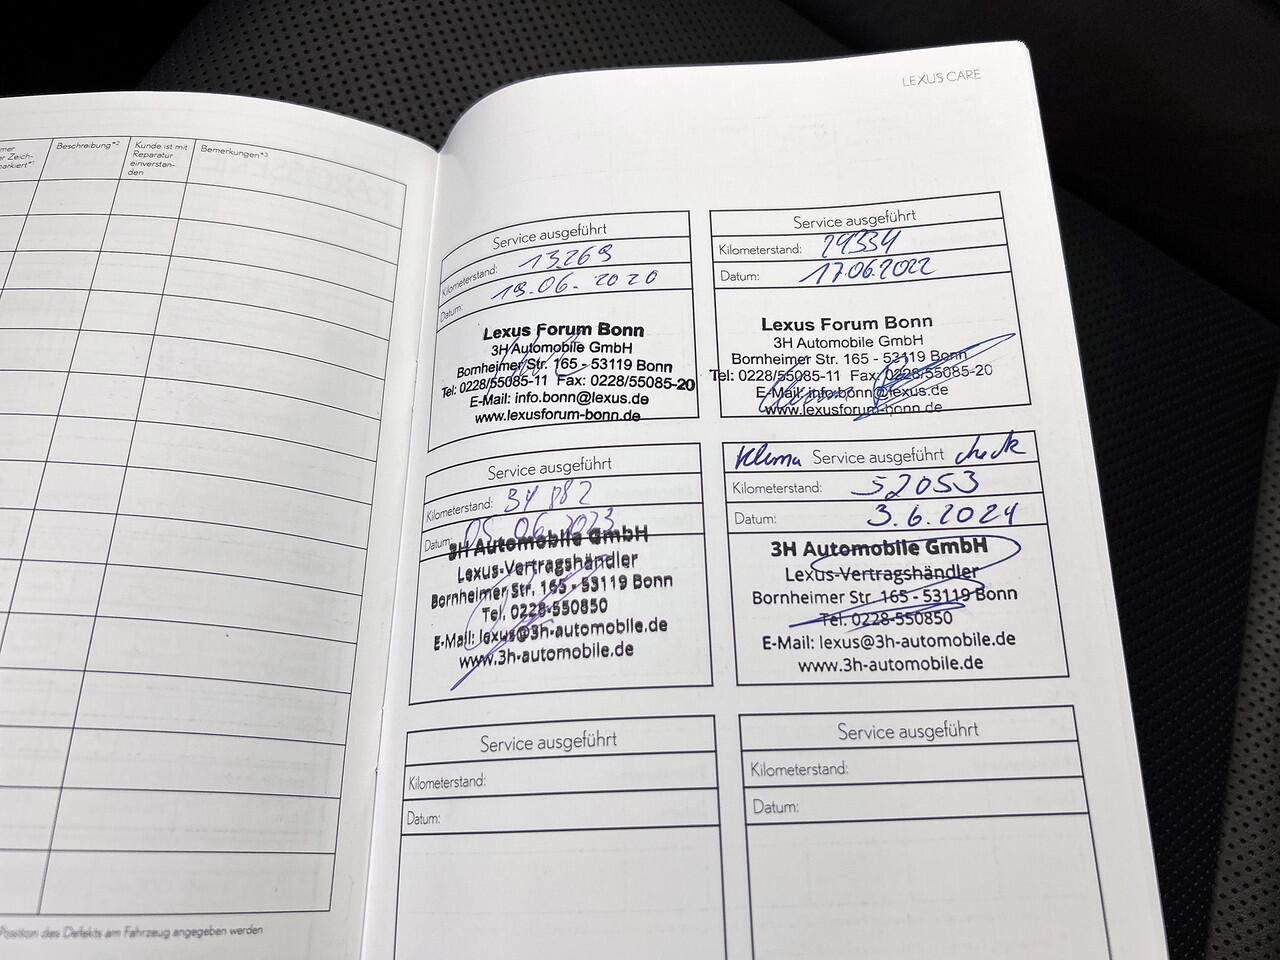 LEXUS CARE
mer
r Zeich-
arkiert*¹
Beschreibung*²
Kunde ist mit
Reparatur
einverstan-
den
Bemerkungen*³
Position des Defekts am Fahrzeug angegeben werden
Service ausgeführt
Kilometerstand: 13269
Datum: 19.06.2020
Lexus Forum Bonn
3H Automobile GmbH
Bornheimer Str. 165 - 53119 Bonn
Tel: 0228/55085-11 Fax: 0228/55085-20
E-Mail: info.bonn@lexus.de
www.lexusforum-bonn.de
Service ausgeführt
Kilometerstand: 29334
Datum: 17.06.2022
Lexus Forum Bonn
3H Automobile GmbH
Bornheimer Str. 165 - 53119 Bonn
Tel: 0228/55085-11 Fax: 0228/55085-20
E-Mail: info.bonn@lexus.de
www.lexusforum-bonn.de
Service ausgeführt
Kilometerstand:
Datum: 05.06.2023
3H Automobile GmbH
Lexus-Vertragshändler
Bornheimer Str. 165 - 53119 Bonn
Tel. 0228-550850
E-Mail: lexus@3h-automobile.de
www.3h-automobile.de
Klima Service ausgeführt check
Kilometerstand: 52053
Datum: 3.6.2024
3H Automobile GmbH
Lexus-Vertragshändler
Bornheimer Str. 165 - 53119 Bonn
Tel. 0228-550850
E-Mail: lexus@3h-automobile.de
www.3h-automobile.de
Service ausgeführt
Kilometerstand:
Datum:
Service ausgeführt
Kilometerstand:
Datum: